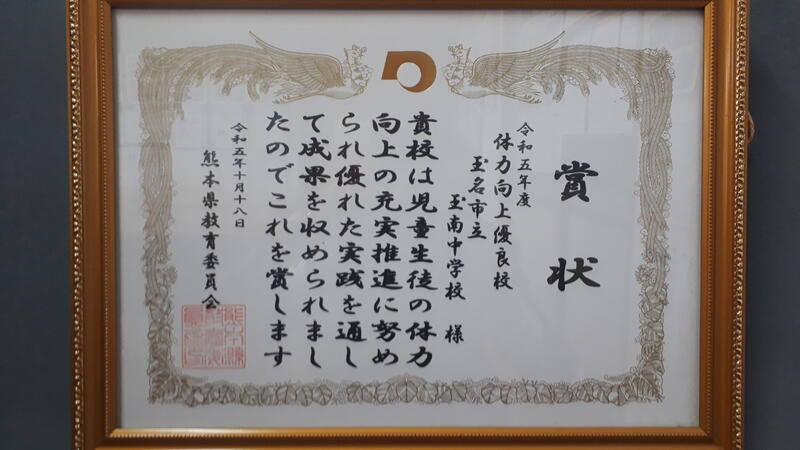 賞状
令和五年度
体力向上優良校
玉名市立
玉南中学校 様
貴校は児童生徒の体力
向上の充実推進に努め
られ優れた実践を通し
て成果を収められまし
たのでこれを賞します
令和五年十月十八日
熊本県教育委員会